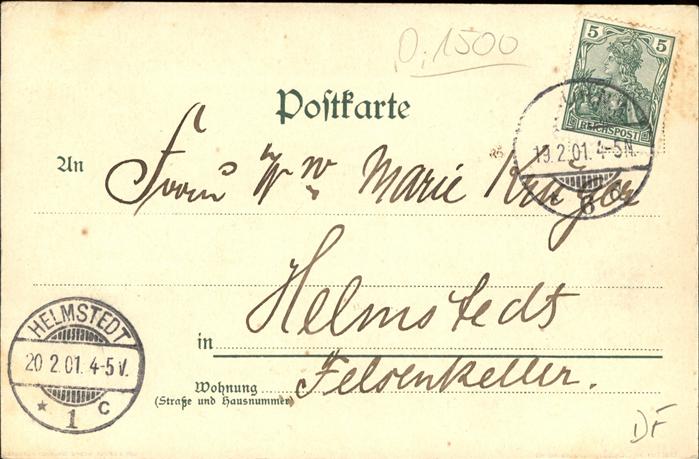 O, 1500
5 5
REICHSPOST
Postkarte
19.2.01. 4-5N.
An Frau Ww Marie Krüger
Helmstedt
in
Wohnung Felsenkeller.
(Straße und Hausnummer)
HELMSTEDT
20 2.01. 4-5V.
* 1 c
DF